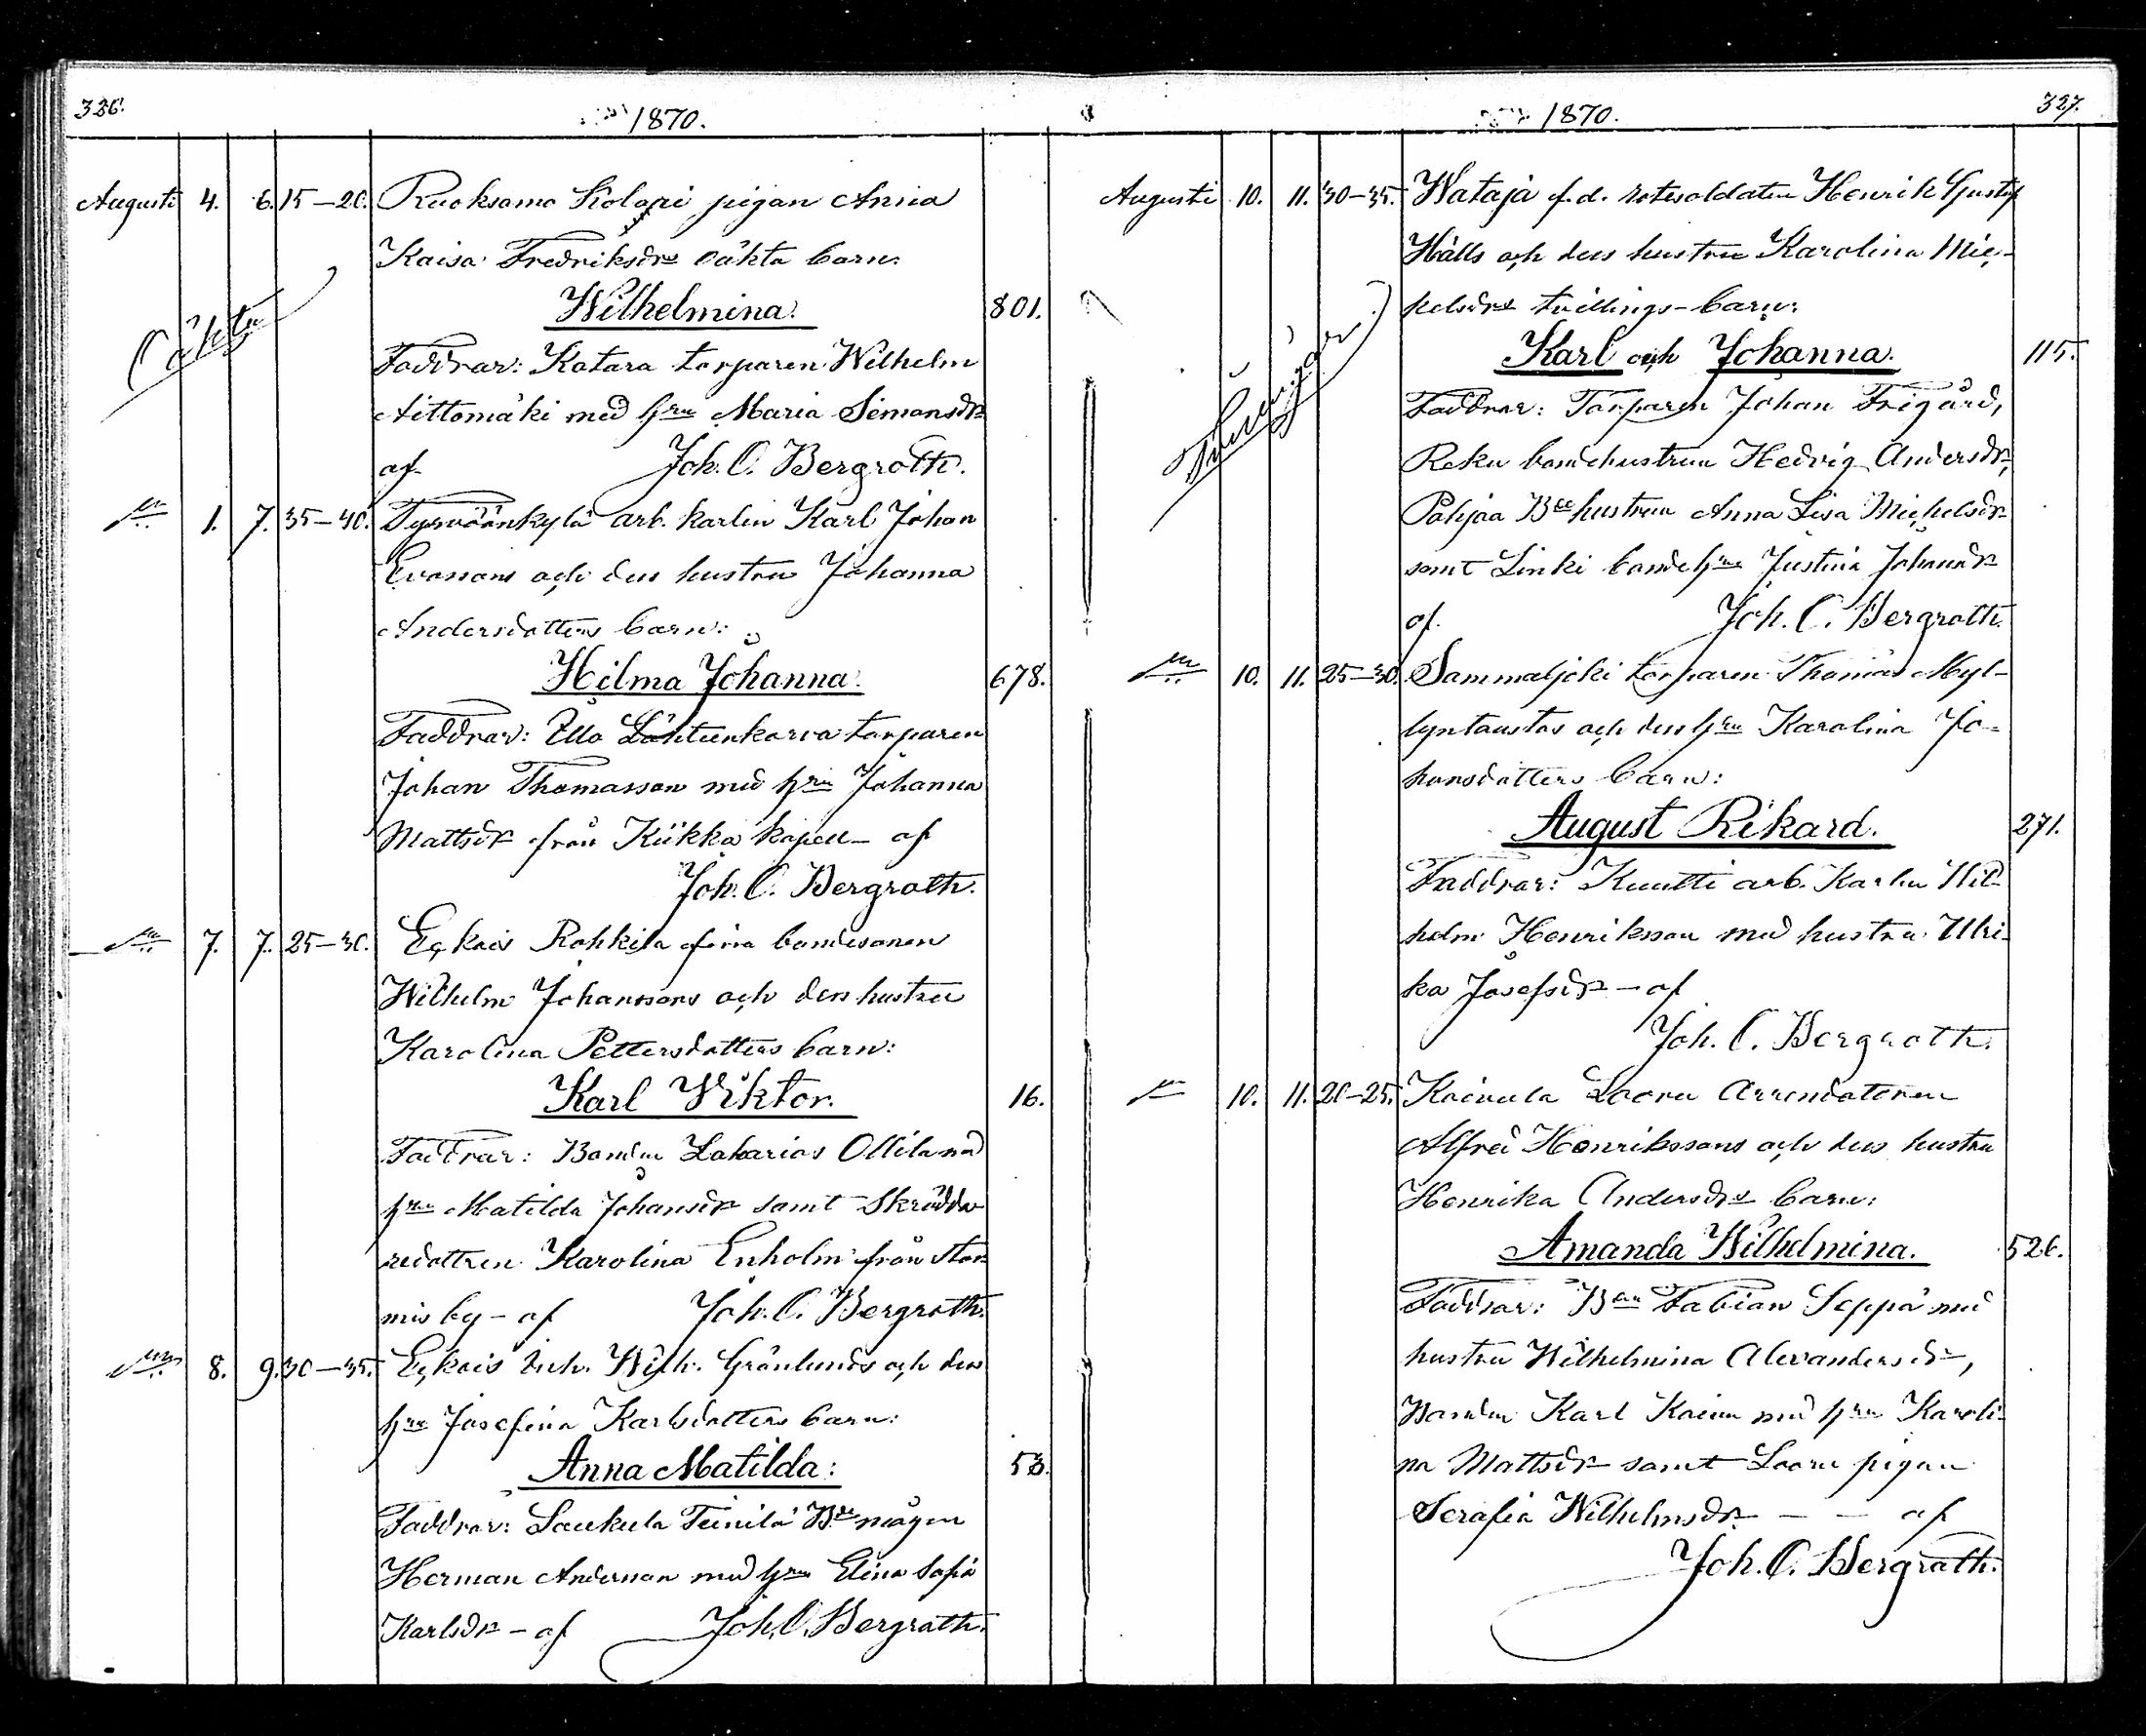 326.
1870.
Augusti 4. 6. 15–20. Ruoksamo Kolari pigan Anna
Kaisa Fredriksdrs oäkta barn:
Oäkta
Wilhelmina. 801.
Faddrar: Katara torparen Wilhelm
Aittomäki med hru Maria Simonsdr
af Joh. O. Bergroth.
1. 7. 35–40. Tyrväänkylä arb. karlen Karl Johan
Evassons och dess hustru Johanna
Andersdotters barn:
Hilma Johanna. 678.
Faddrar: Illo torparen
Johan Thomasson med hru Johanna
Mattsdr från Kiikka kapell – af
Joh. O. Bergroth.
7. 7. 25–30. Ekois Rohkila förra bondesonen
Wilhelm Johanssons och dess hustru
Karolina Pettersdotters barn:
Karl Viktor. 16.
Faddrar: Bonden Zakarias Ollila md
hru Matilda Johansdr samt Skrädda-
redottren Karolina Enholm från Stor-
mis by – af Joh. O. Bergroth.
8. 9. 30–35. Ekois Inh. Wilh. Grönlunds och dess
hru Josefina Karlsdotters barn:
Anna Matilda: 53.
Faddrar: Saukula Teinilä Bde mågen
Herman Anderson med hru Elina Sofia
Karlsdr – af Joh. O. Bergroth.
1870.
327.
Augusti 10. 11. 30–35. Wataja f.d. rotesoldaten Henrik Gustaf
Hälls och dess hustru Karolina Mic-
kelsdrs tvillings-barn:
Tvillingar
Karl och Johanna. 115.
Faddrar: Torparen Johan Frigård,
Reku bondehustrun Hedvig Andersdr,
Pohjaa Bdehustrun Anna Lisa Michelsdr
samt Linki bondehru Justina Johansdr
af. Joh. O. Bergroth.
10. 11. 25–30. Sammaljoki torparen Thomas Myl-
lyntaustas och dess hru Karolina Jo-
hansdotters barn:
August Rikard. 271.
Faddrar: Kuutti arb. Karlen Wil-
helm Henriksson med hustru Ulri-
ka Josefsdr – af
Joh. O. Bergroth.
10. 11. 20–25. Koivula Looru Arrendatoren
Alfred Henrikssons och dess hustru
Henrika Andersdrs barn:
Amanda Wilhelmina. 526.
Faddrar: Bden Fabian Seppä med
hustru Wilhelmina Alexandersdr,
Bonden Karl med hru Karoli-
na Mattsdr samt Looru pigan
Serafia Wilhelmsdr – – af
Joh. O. Bergroth.